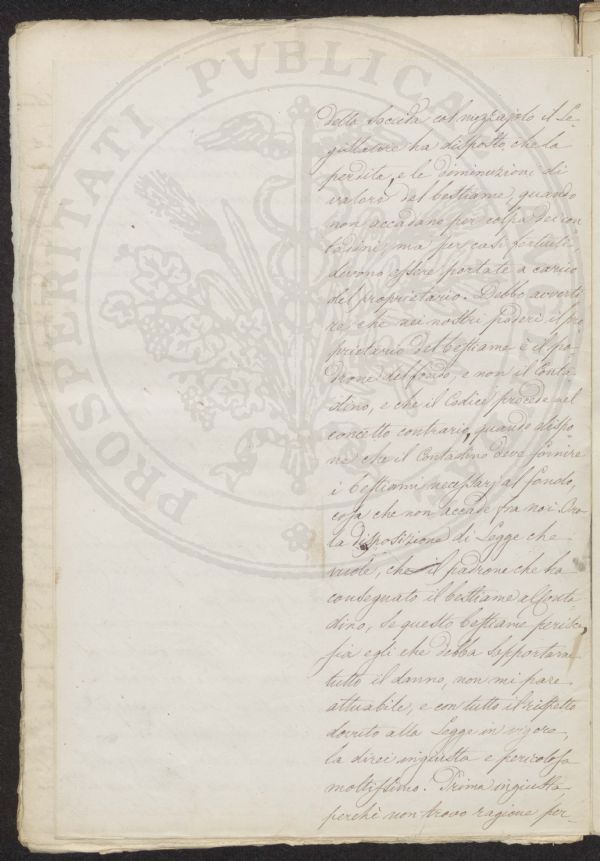 della Soccida col mezzajolo il Le-
gislatore ha disposto che la
perdita, e le diminuzioni di
valore del bestiame, quando
non accadano per colpa dei con
tadini, ma per casi fortuiti
devono essere portate a carico
del proprietario. Debbo avverti
re che nei nostri poderi il pro
prietario del bestiame è il pa-
drone del fondo, e non il Conta
dino, e che il Codice procede nel
concetto contrario, quando dispo
ne che il Contadino deve fornire
i bestiami necessarj al fondo,
cosa che non accade fra noi. Ora
la disposizione di Legge che
vuole, che il padrone che ha
consegnato il bestiame al Conta
dino, se questo bestiame perisce,
sia egli che debba sopportare
tutto il danno, non mi pare
attuabile, e con tutto il rispetto
dovuto alla Legge in vigore,
la direi ingiusta e pericolosa
moltissimo. Prima ingiusta,
perchè non trovo ragione per-
PROSPERITATI PVBLICAE